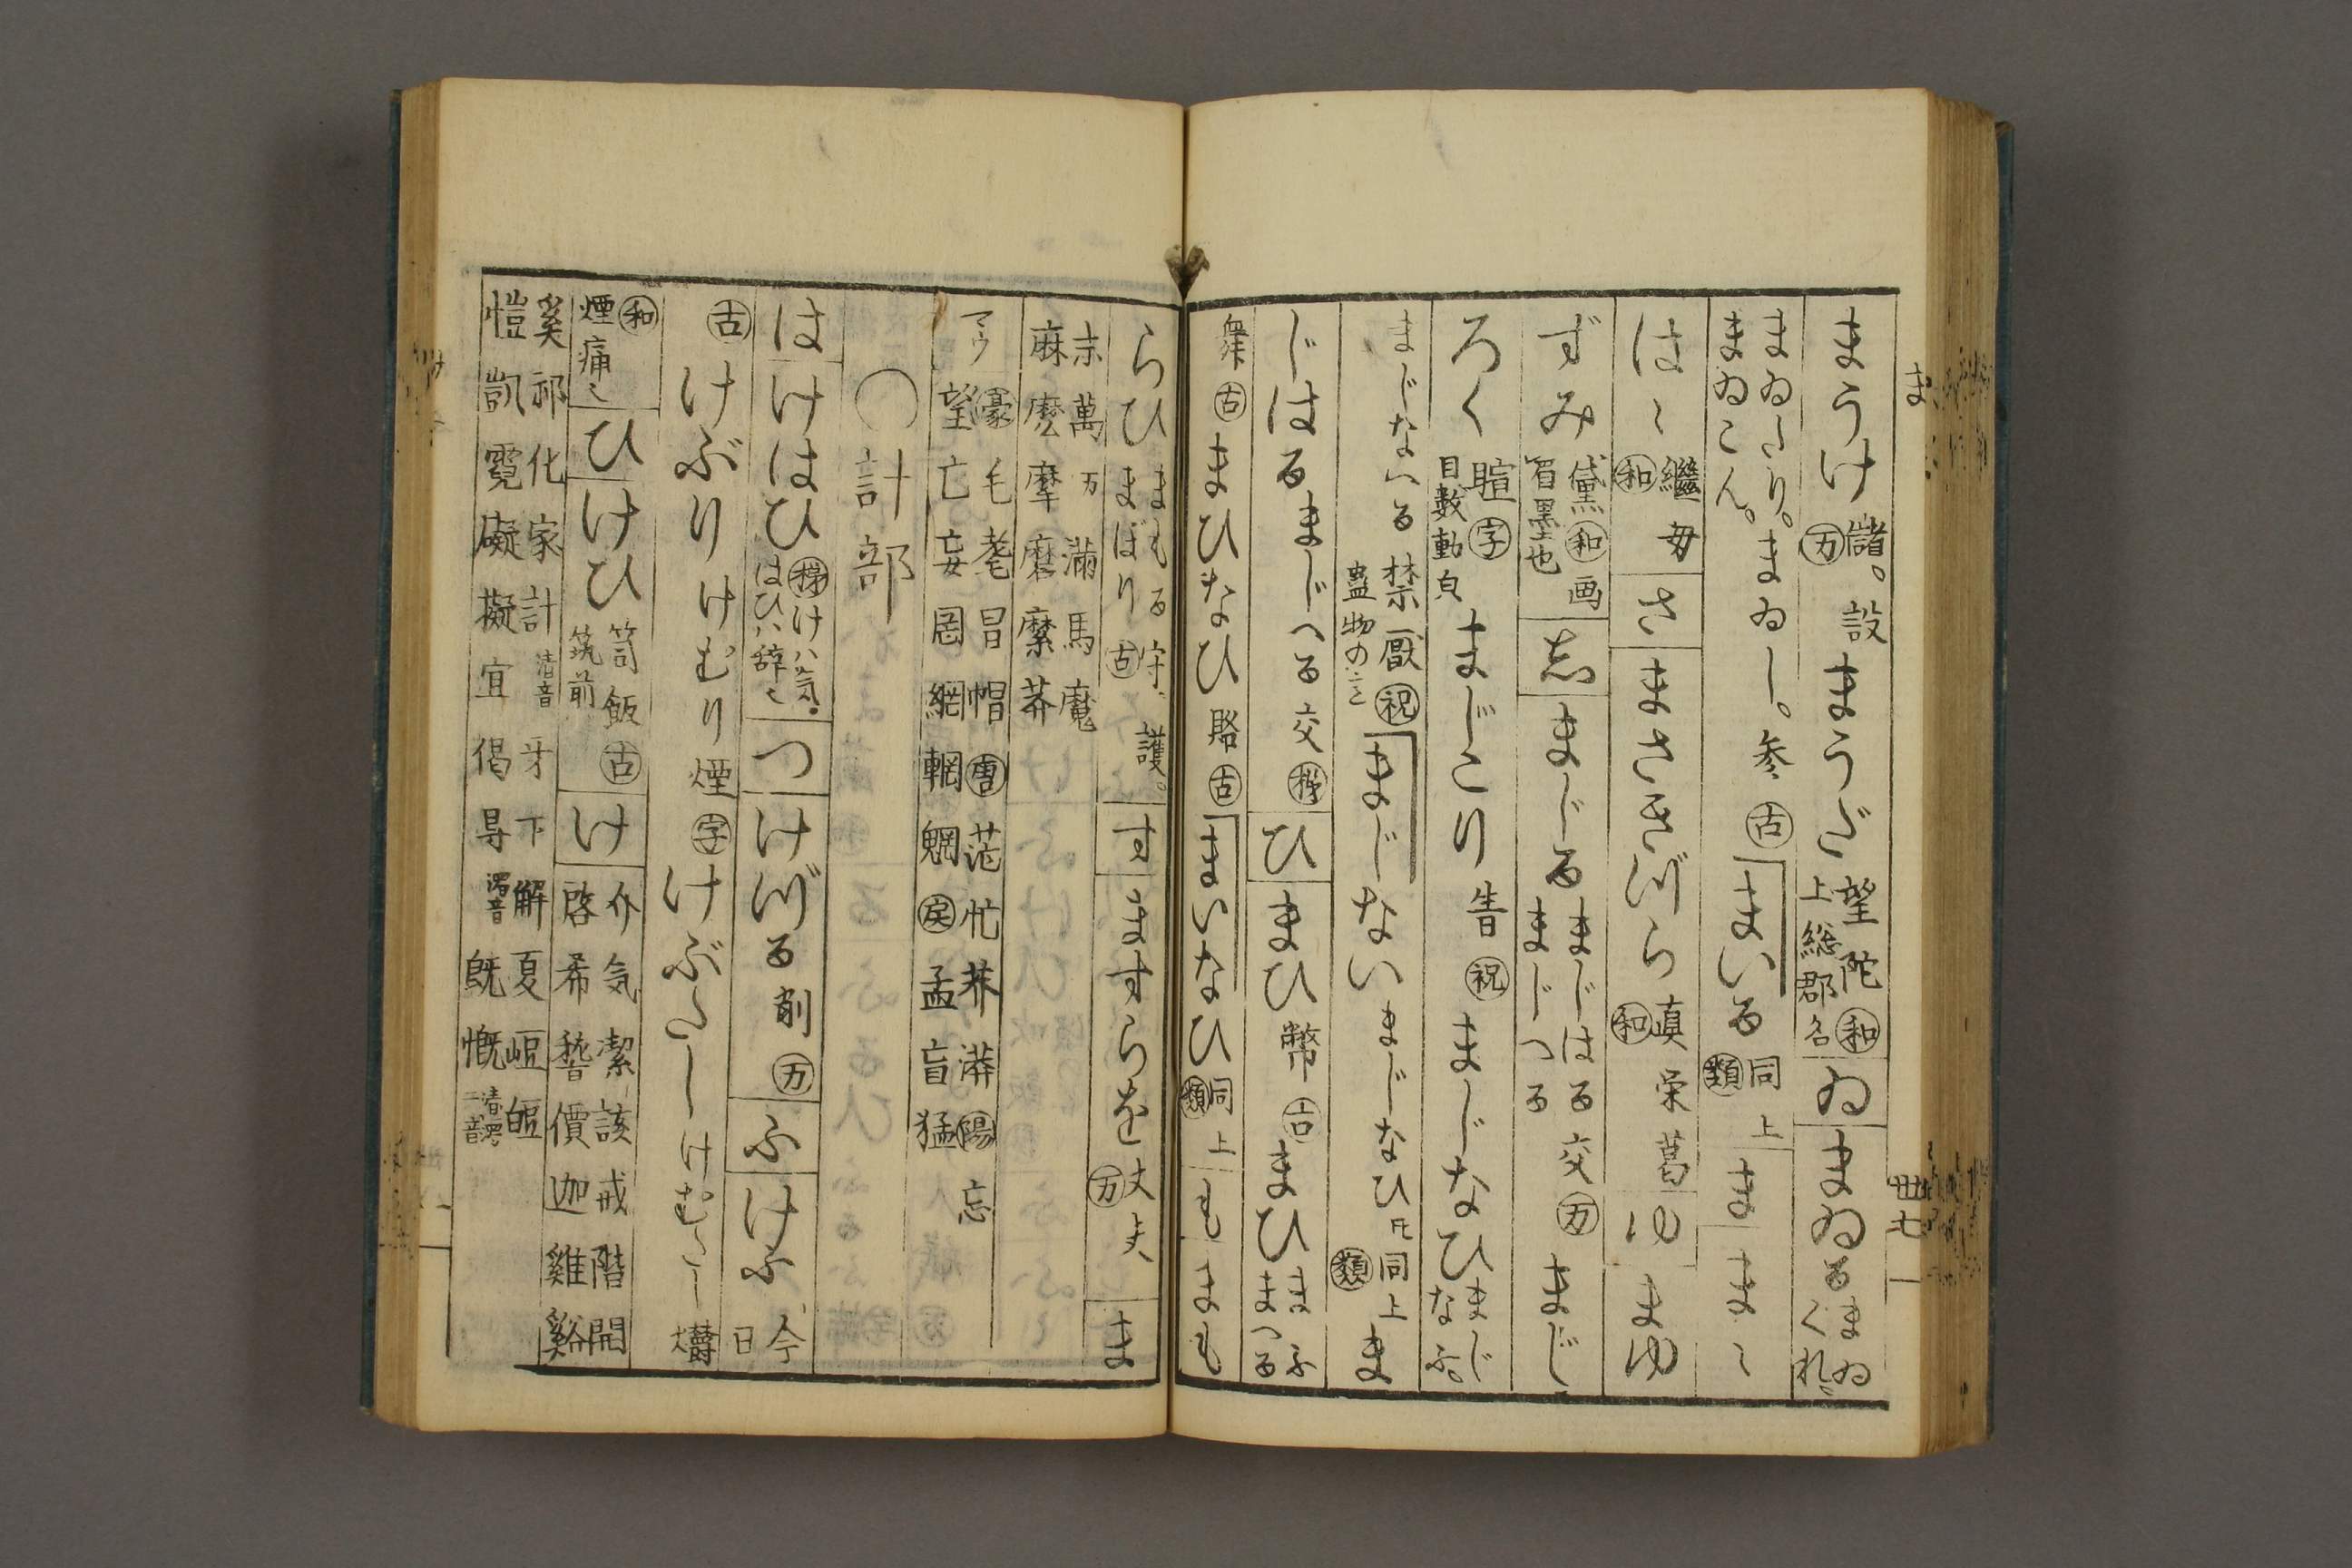 ま
まうけ儲。設万まうだ望陀和上総郡名ゐまゐるまゐくれ
まゐたり。まゐし。参古まいる同上類ままゝ
まゐこん。
はゝ繼母和さまさきづら真栄葛和ゆまゆ
ずみ黛和画眉墨也志まじるまじはるまじへる交万まじ
ろく眶字目数動皃まじこり告祝まじなひまじなふ。
まじなへる禁厭祝蠱物のこと まじないまじなひ同上類ま
じはるまじへる交ひまひ幣古まひまふまへる
舞古まひなひ賂古まいなひ同上類もまも
卅七
らひまもるまぼり守護。古すますらを丈夫万ま
末萬万滿馬魔
麻麽摩磨縻莽
マウ豪毛耄冒帽唐茫忙莽漭陽忘
望亡妄罔網輞魍庚孟盲猛
〇計部
はけはひけハ気。はひハ辞つけづる削万ふけふ今日
古けぶりけむり煙字けぶたしけむたし
和煙痛ひけひ笥飯古筑前け介気潔該戒階開
啓希嵆價迦雞谿
奚祁化家計清音牙下解夏
愷凱霓礙擬宜偈㝵濁音既慨清濁二音